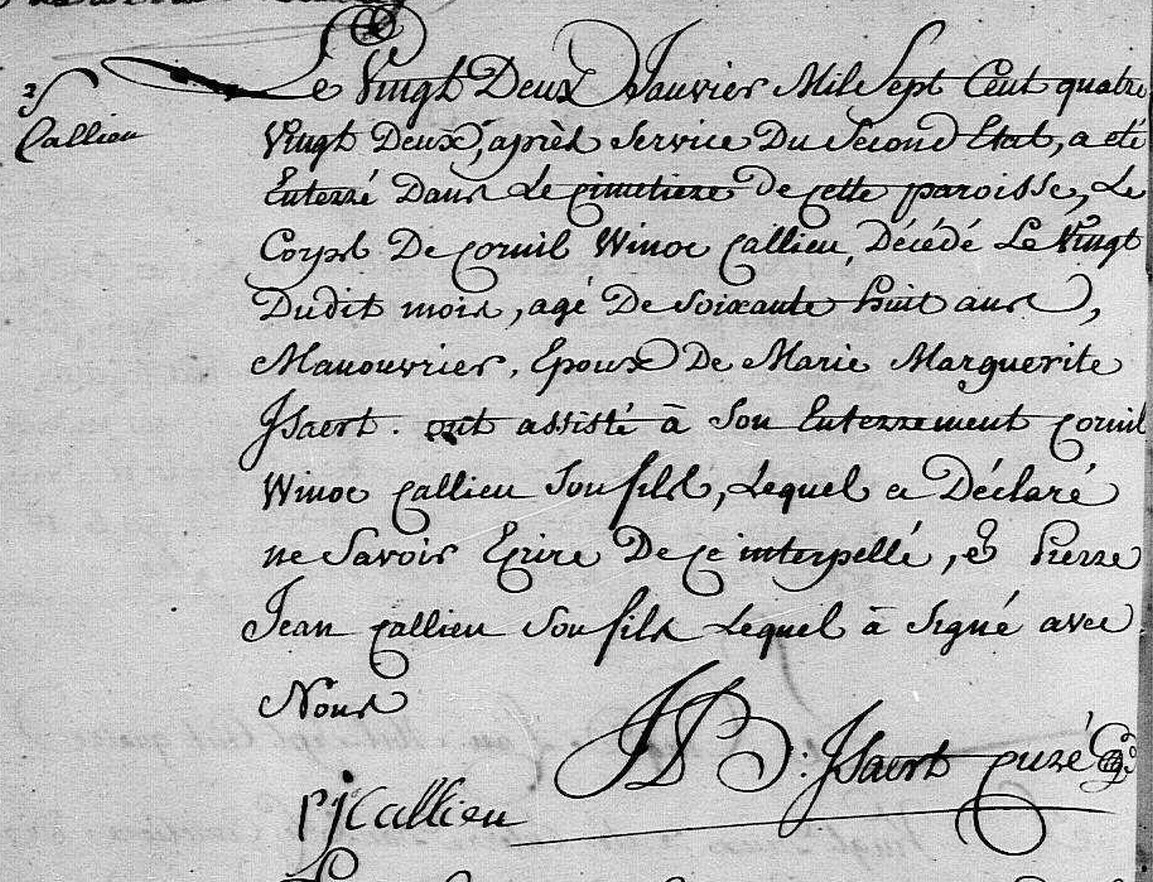 Callieu
Le Vingt Deux Janvier Mil Sept Cent quatre
Vingt Deux, après Service Du Second Etat, a eté
Enterré Dans Le cimetiere De cette paroisse, Le
Corps De cornil Winoc Callieu, Décédé Le Vingt
Dudit mois, agé De soixante huit ans,
Manouvrier, Epoux De Marie Marguerite
Jsaert. ont assisté à Son Enterrement cornil
Winoc Callieu Son fils, Lequel a Déclaré
ne Savoir Ecrire De ce interpellé, & Pierre
Jean Callieu Son fils Lequel à Signé avec
Nous
: Jsaert curé
pjcallieu